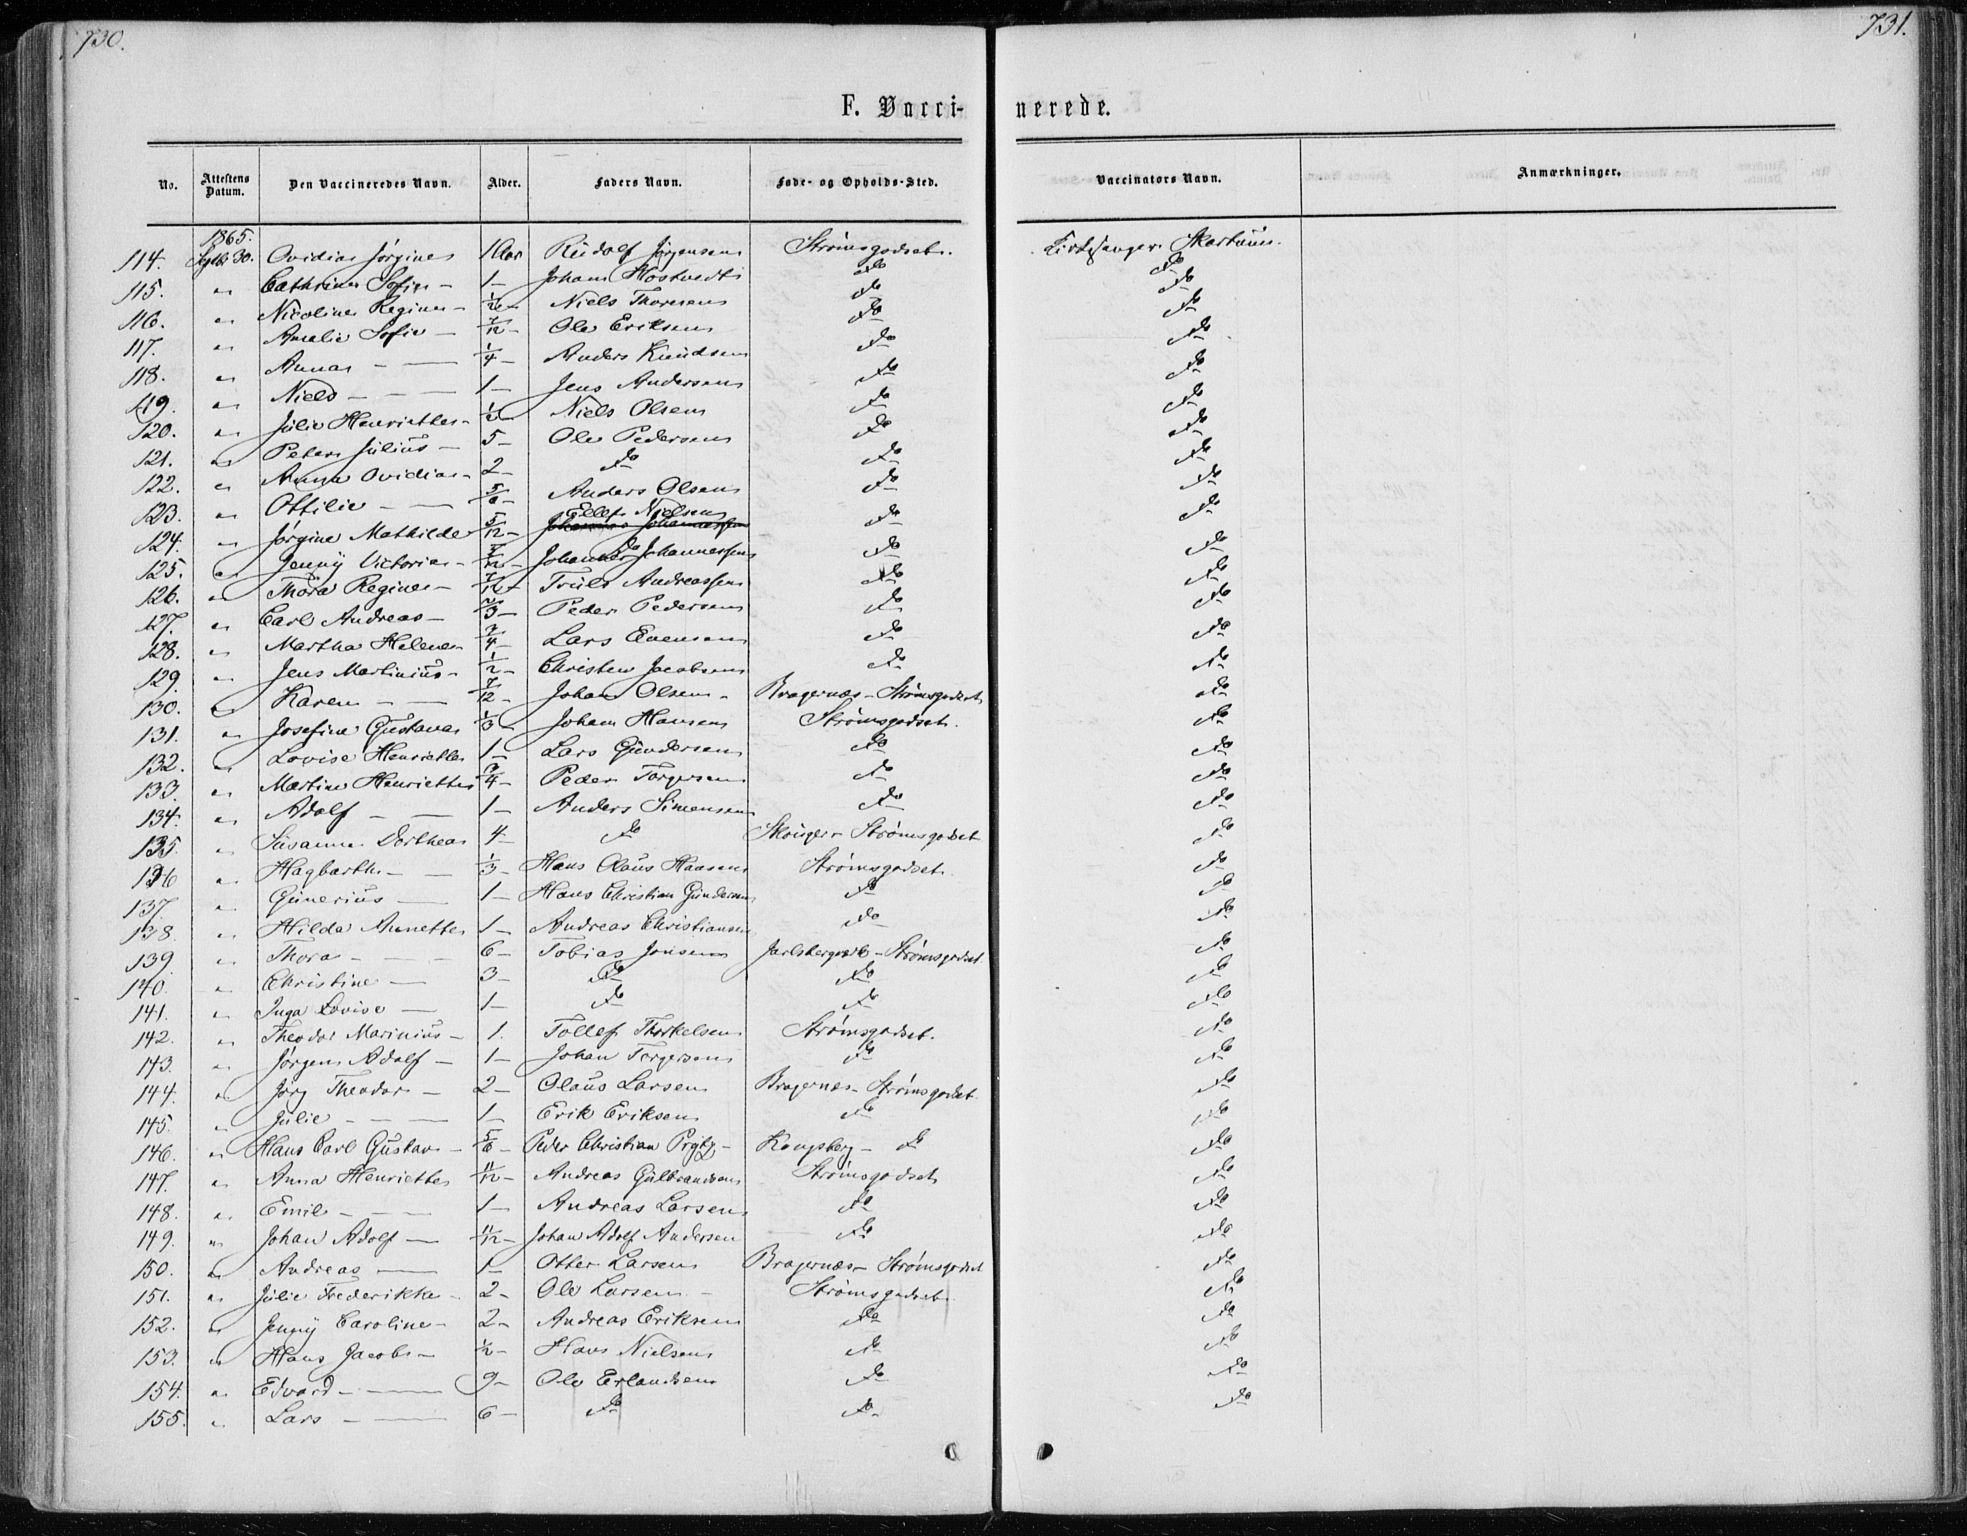 730.
731.
F. Vacci-
nerede.
No. Attestens Datum. Den Vaccineredes Navn. Alder. Faders Navn. Føde- og Opholds-Sted. Vaccinators Navn. Anmærkninger.
1865.
114. Septbr 30. Ovidia Jørgine 1 Aar Rudolf Jørgensen Strømsgodset. Kirkesanger Skartum.
115. " Cathrine Sofie - 1 - Johan Hostvedt Do Do
116. " Nicoline Regine - 1/2 - Niels Thoresen Do Do
117. " Amalie Sofie - 7/12 - Ole Eriksen Do Do
118. " Anna - 1/4 - Anders Knudsen Do Do
119. " Niels - 1 - Jens Andersen Do Do
120. " Julie Henriette - 1/2 Niels Olsen Do Do
121. " Peter Julius - 5 - Ole Pedersen Do Do
122. " Anna Ovidia - 2 - Do Do Do
123. " Ottilie - 5/6 - Anders Olsen Do Do
124. " Jørgine Mathilde 5/12 - Ellef Nielsen Do Do
125. " Jenny Victoria - Johannes Johannessen Do Do
126. " Thora Regine - 7/12 - Truls Andreassen Do Do
127. " Carl Andreas - 2/3 - Peder Pedersen Do Do
128. " Martha Helene 3/4 - Lars Evensen Do Do
129. " Jens Martinius - 1/2 - Christen Jacobsen Do Do
130. " Karen - 7/12 - Johan Olsen - Bragernæs - Strømsgodset Do
131. " Josefine Gustava 1/3 - Johan Hansen Strømsgodset. Do
132. " Lovise Henriette 1 - Lars Gundersen Do Do
133. " Martine Henriette 3/4 - Peder Torgersen Do Do
134. " Adolf - 1 - Anders Simensen Do Do
135. " Susanne Dorthea 4 - Do Skouger - Strømsgodset Do
136 " Hagbarth - 1/3 - Hans Olaus Haasen Strømsgodset. Do
137. " Gunerius - 1 - Hans Christian Gundersen Do Do
138. " Hilda Annette 1 - Andreas Christiansen Do Do
139. " Thora - 6 - Tobias Jonsen Jarlsbergværk - Strømsgodset. Do
140. " Christine - 3 - Do Do Do
141. " Inga Lovise - 1 - Do Do Do
142. " Theodor Marinius - 1. Tollef Thorkelsen Strømsgodset. Do
143. " Jørgen Adolf - 1 - Johan Torgersen Do Do
144. " Jørg Theodor - 2 - Olaus Larsen Bragernæs - Strømsgodset. Do
145. " Julie - 1 - Erik Eriksen Do Do
146. " Hans Carl Gustav - 5/6 - Peder Christian Prytz - Kongsberg - Do Do
147. " Anna Henriette 11/12 - Andreas Gulbrandsen Strømsgodset Do
148. " Emil - 1 - Andreas Larsen Do Do
149. " Johan Adolf - 11/12 - Johan Adolf Andersen Do Do
150. " Andreas - 1 - Otter Larsen Bragernæs - Strømsgodset Do
151. " Julie Frederikke - 2 - Ole Larsen - Strømsgodset. Do
152. " Jenny Caroline - 2 - Andreas Eriksen Do Do
153. " Hans Jacob - 1/2 - Hans Nielsen Do Do
154. " Edvard - 9 - Ole Erlandsen Do Do
155. " Lars - 6 - Do Do Do